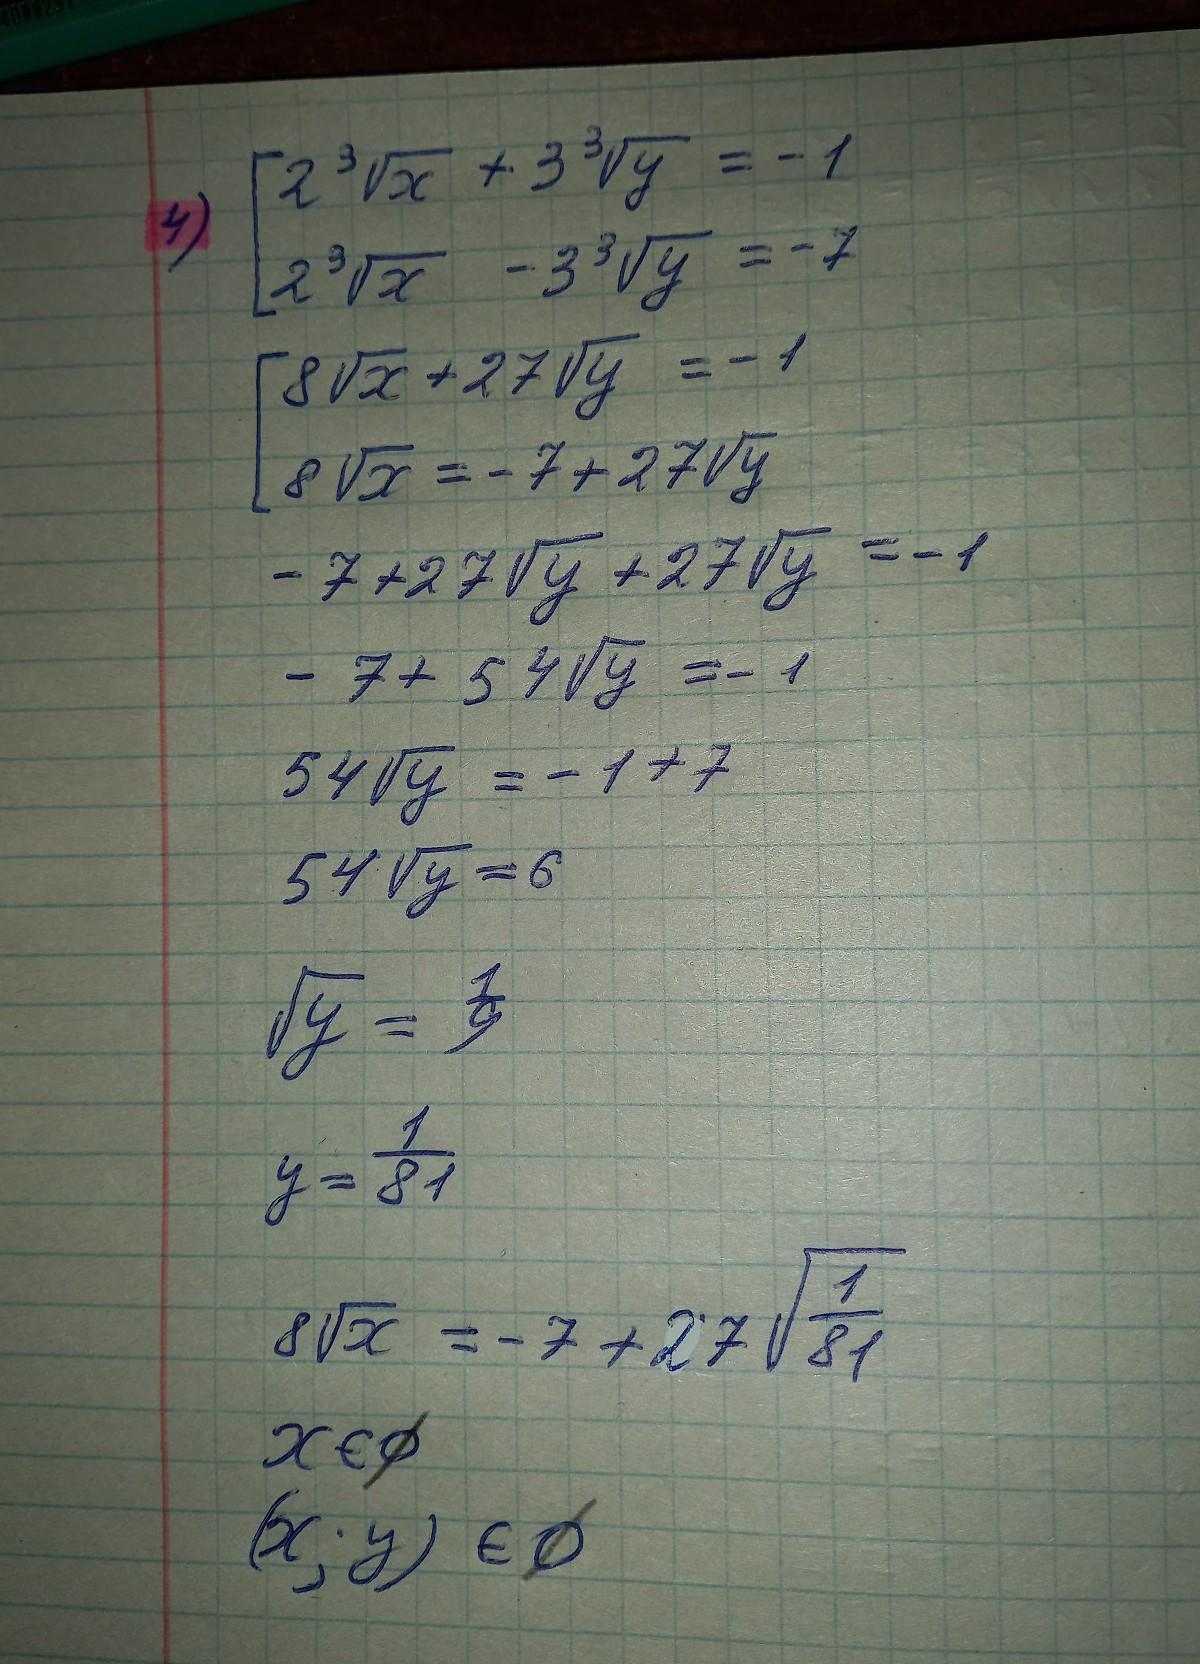 4) [2³√x + 3³√y = -1
2³√x - 3³√y = -7
[8√x + 27√y = -1
8√x = -7 + 27√y
-7 + 27√y + 27√y = -1
-7 + 54√y = -1
54√y = -1 + 7
54√y = 6
√y = 1/9
y = 1/81
8√x = -7 + 27√(1/81)
x ∈ ∅
(x; y) ∈ ∅